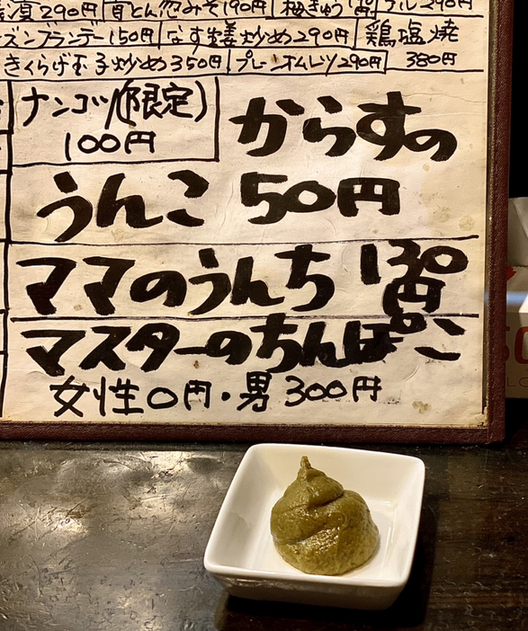 290円 百とん忽みそ190円 梅きゅう 290円
ーズンブランデー150円 なす生姜炒め290円 鶏塩焼
きくらげ玉子炒め350円 プレーンオムレツ290円 380円
ナンコツ(限定)
100円
からすの
うんこ 50円
ママのうんち 130円
マスターのちんぽこ
女性0円・男300円